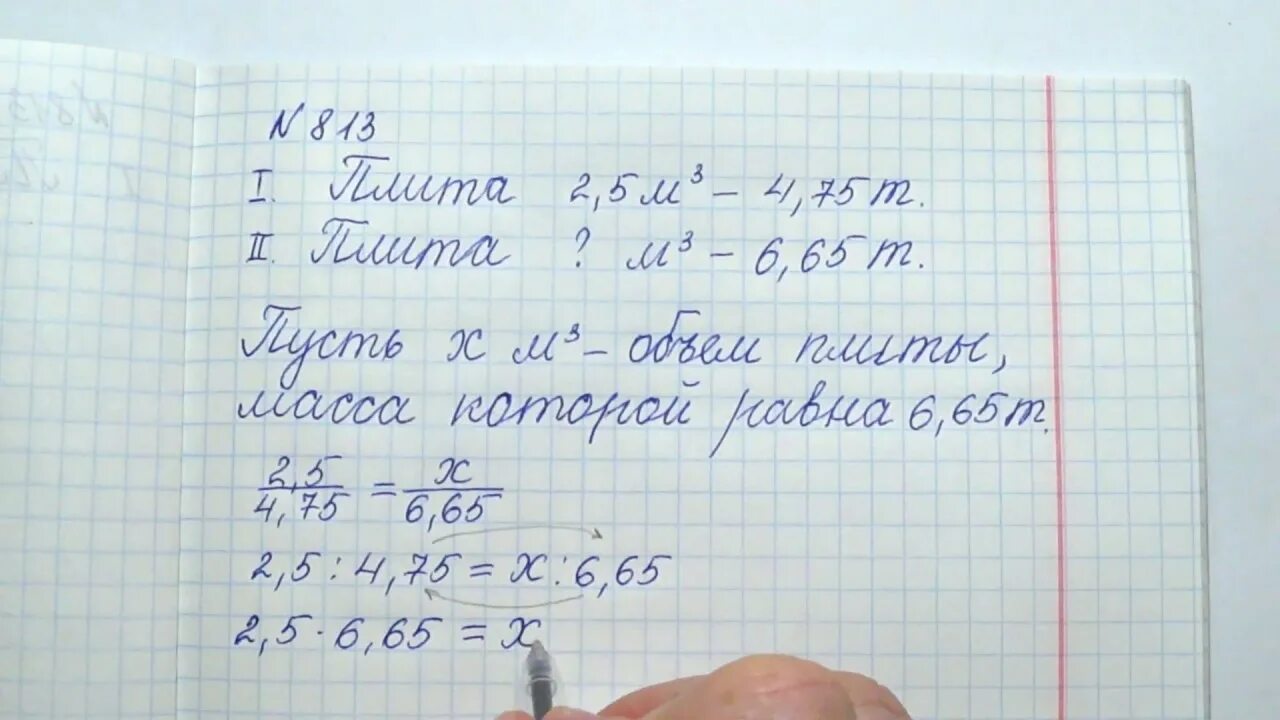 N 813
I. Плита 2,5 м³ – 4,75 т.
II. Плита ? м³ – 6,65 т.
Пусть x м³ – объем плиты,
масса которой равна 6,65 т.
2,5/4,75 = x/6,65
2,5 : 4,75 = x : 6,65
2,5 · 6,65 = x